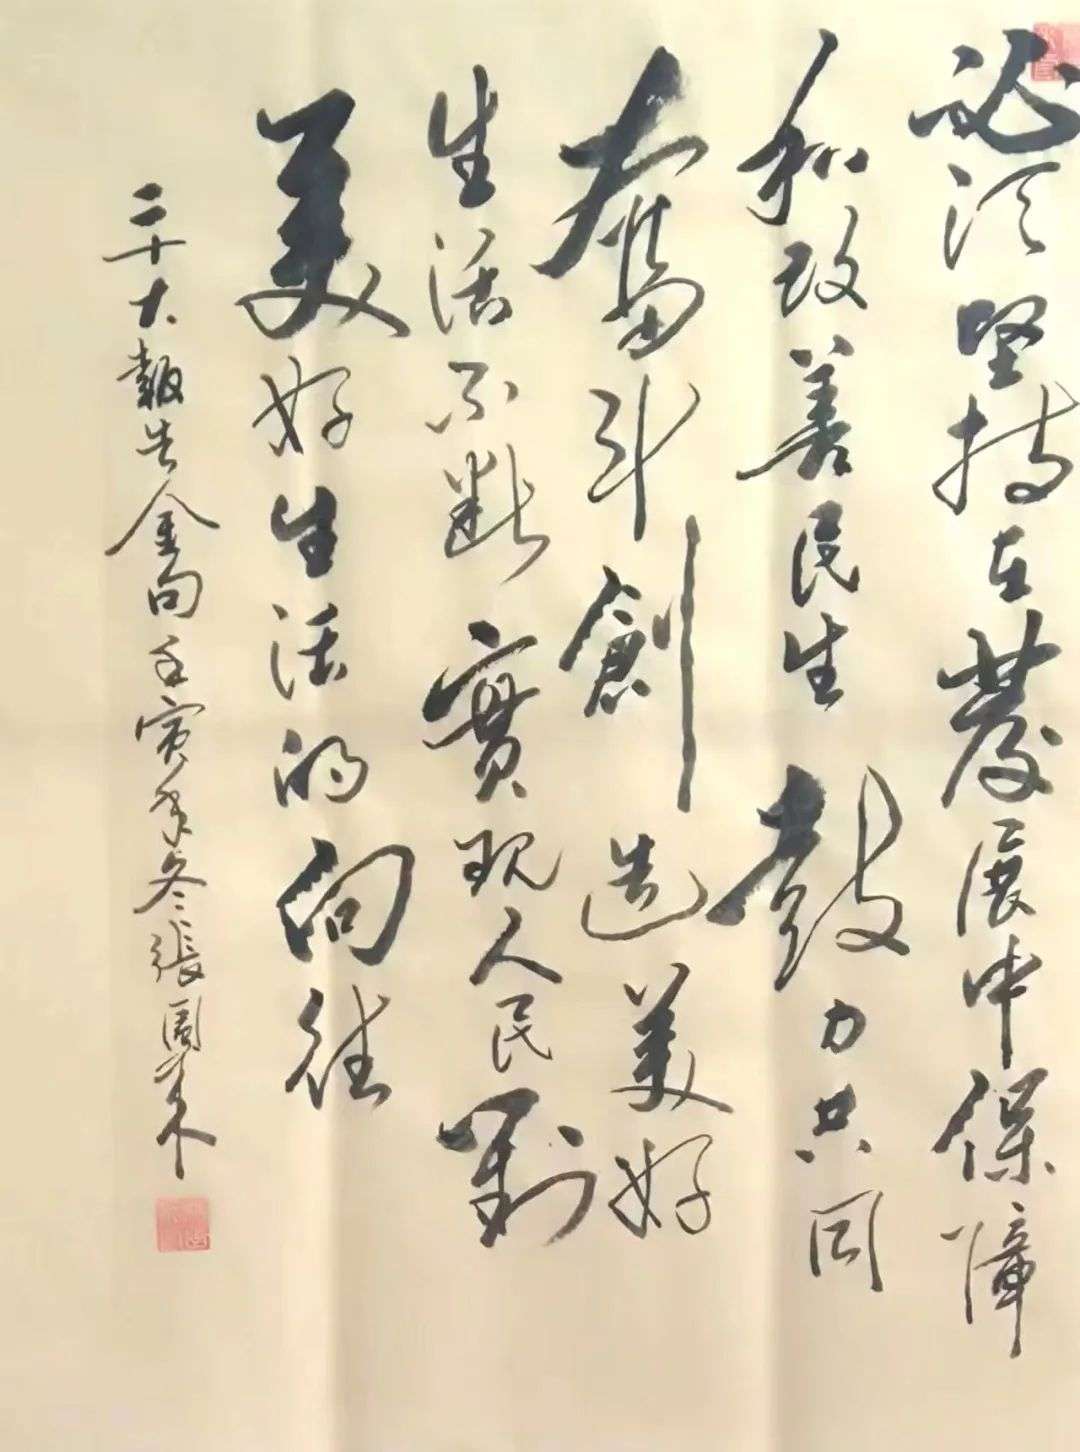 必须坚持在發展中保障
和改善民生鼓力共同
奮斗創造美好
生活不断實现人民對
美好生活的向往
二十大報告金句壬寅年冬張国来